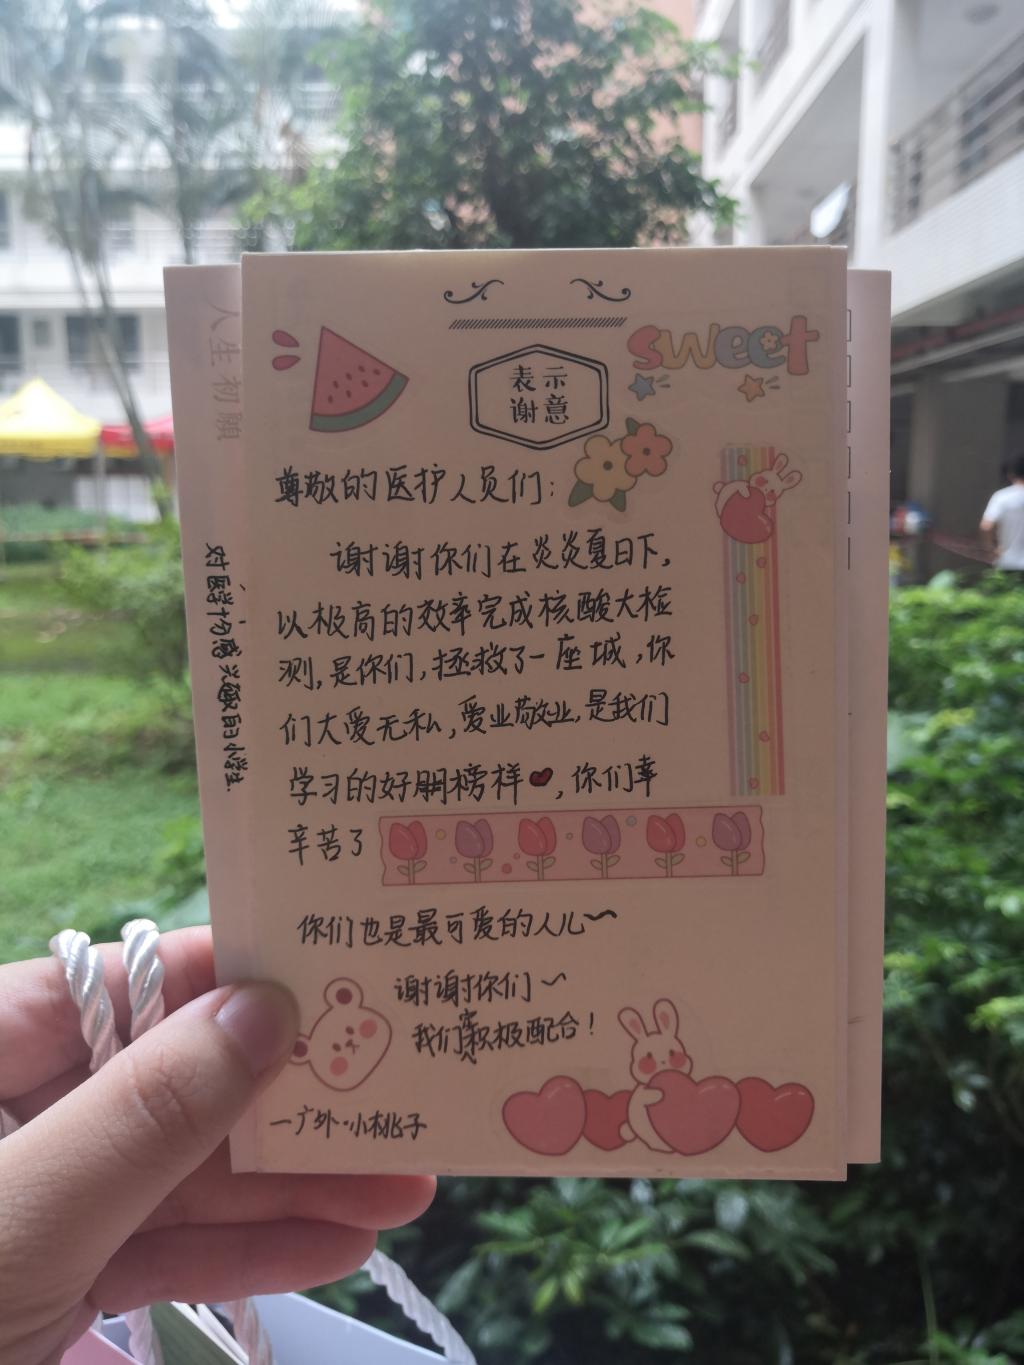 sweet
表示
谢意
尊敬的医护人员们：
谢谢你们在炎炎夏日下，
以极高的效率完成核酸大检
测，是你们，拯救了一座城，你
们大爱无私，爱业敬业，是我们
学习的好朋榜样，你们幸
辛苦了
你们也是最可爱的人儿～
谢谢你们～
我们会积极配合！
—广外·小桃子
人生初願
对医学十分感兴趣的小学生